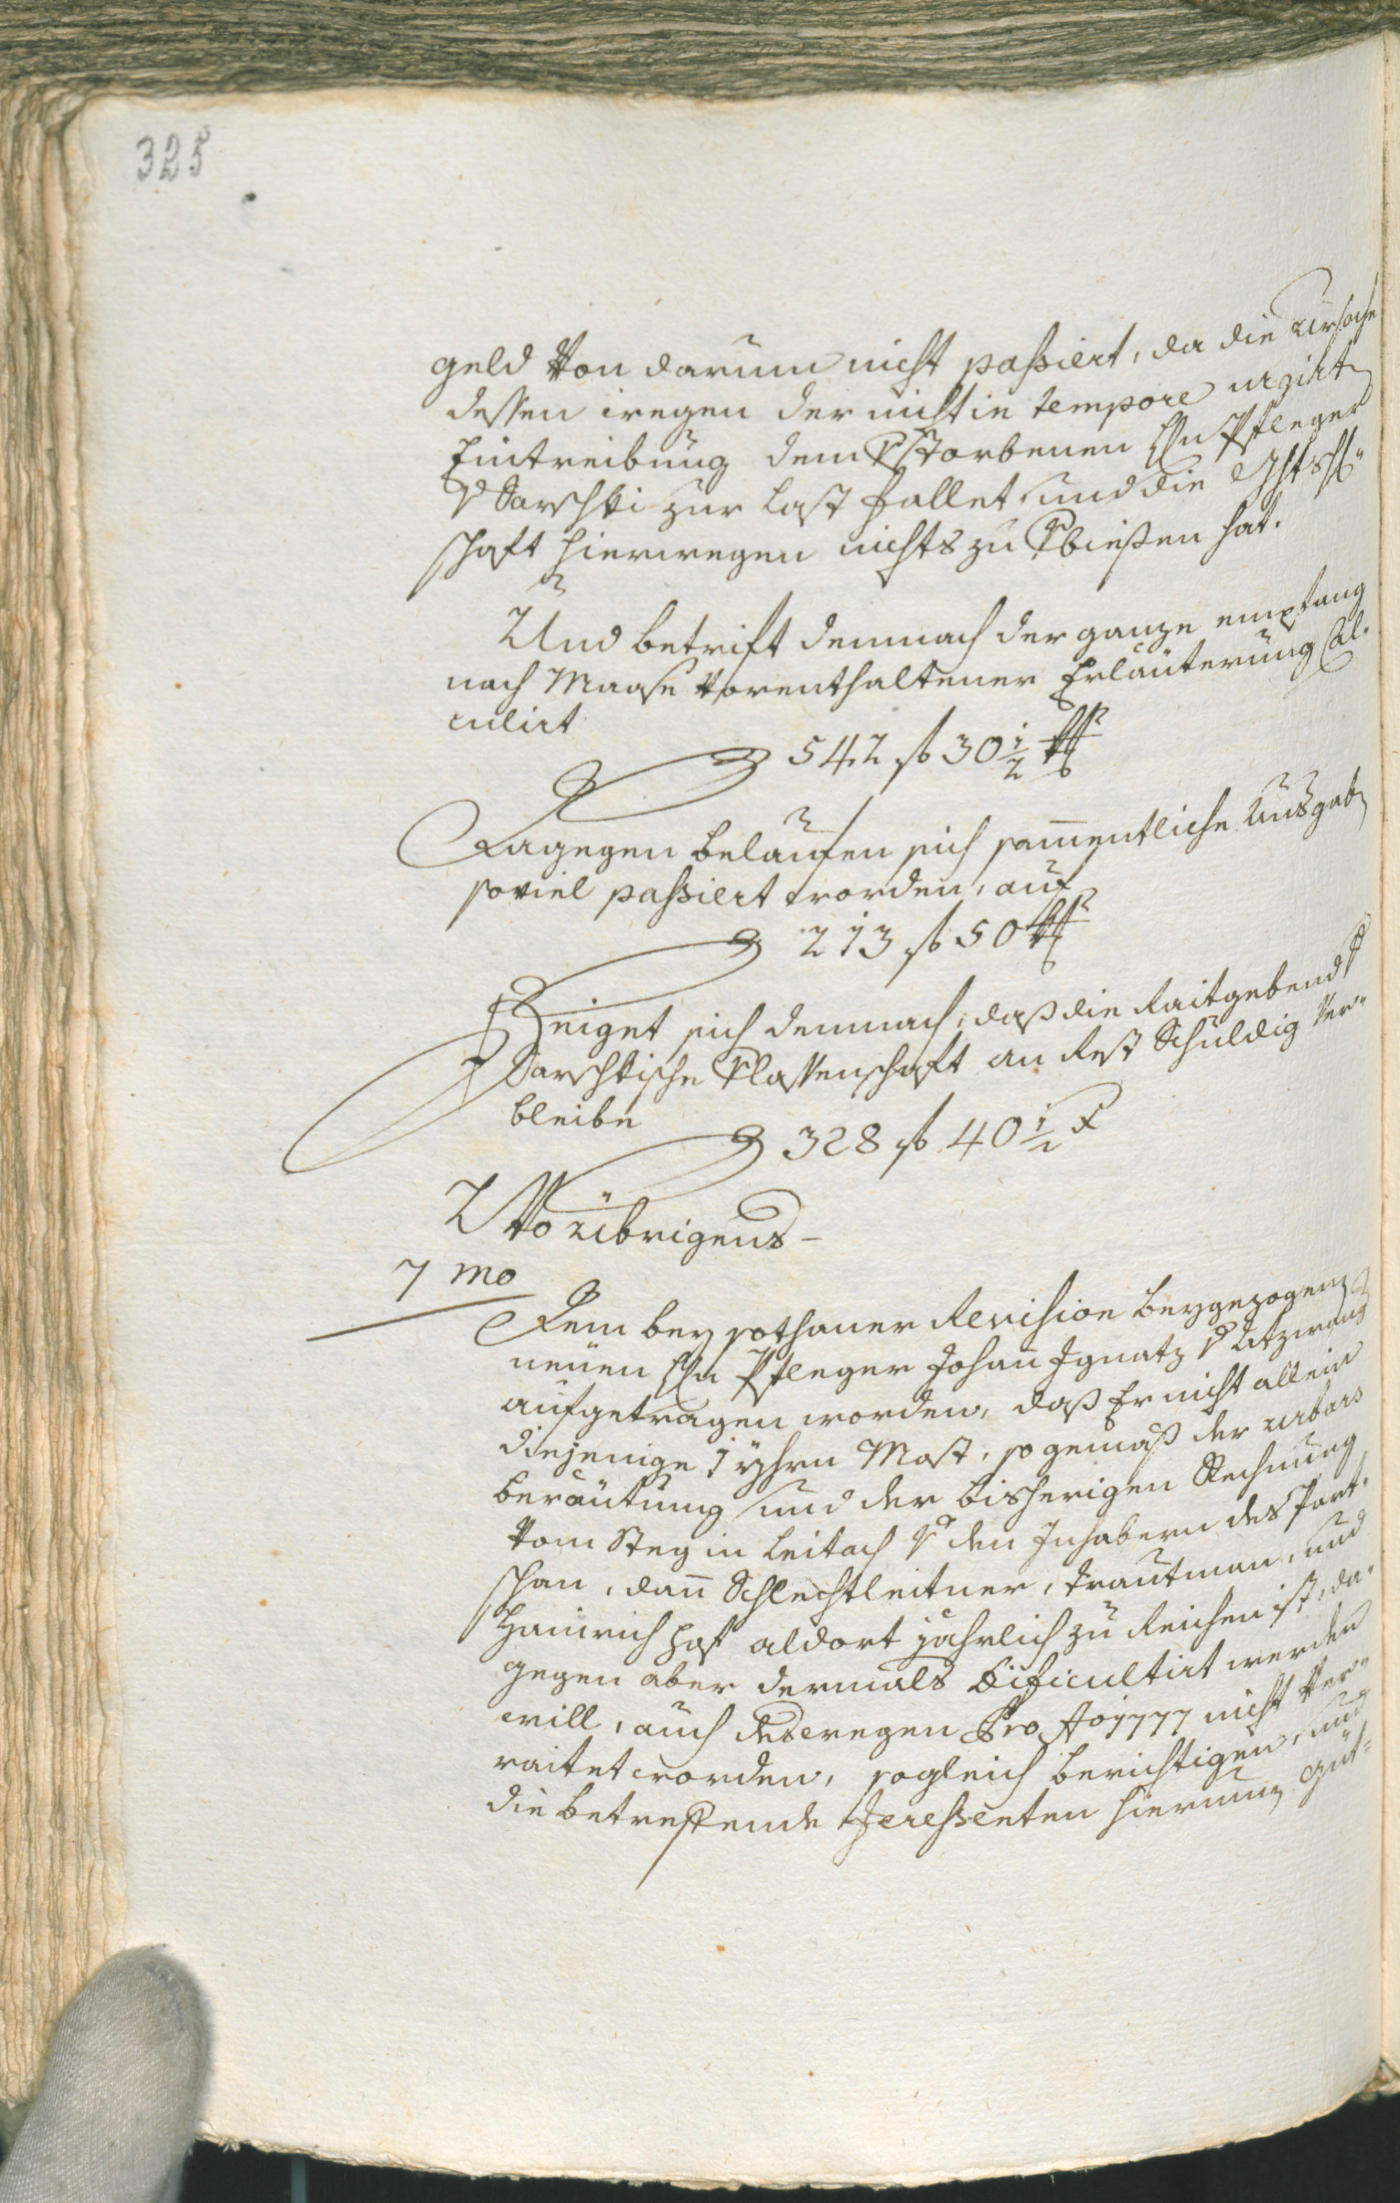 325
geld Von darum nicht passiert, da die Ursache
dessen wegen der nicht in tempore urgirt
Eintreibung dem Verstorbenen Hn Pfleger
v Sarchti zur Last fallet und die
schaft hierwegen nichts zu Verbießen hat.
Und betrift demnach der ganze empfang
nach Maase Vorenthaltener Erläuterung Cal-
culirt
542 f 30 1/2 xr
Dagegen belaufen sich samentliche Ausgab
soviel passiert worden, auf
213 f 50 xr
Zeiget sich demnach, daß die Raitgebend
Sarchtische Verlassenschaft an Rest Schuldig Ver-
bleibe
328 f 40 1/2 x
Wo übrigens -
7 mo
Dem bey sothaner Revision beygezogenen
neuen Hn Pfleger Johan Ignatz v Atzwang
aufgetragen worden, daß Er nicht allein
diejenige 1 yhrn Most, so gemäß der urbars
beräutung und der bisherigen Rechnung
Vom Steg in Leitach v den Inhabern des Part-
schan, dan Schlechtleitner, Trautman, und
Hainrich Hof aldort jährlich zu Reichen ist, da-
gegen aber dermals Dificultirt werden
will, auch deswegen Pro Ao 1777 nicht Ver-
raitet worden, sogleich berichtigen, und
die betreffende Interessenten hierum güt-